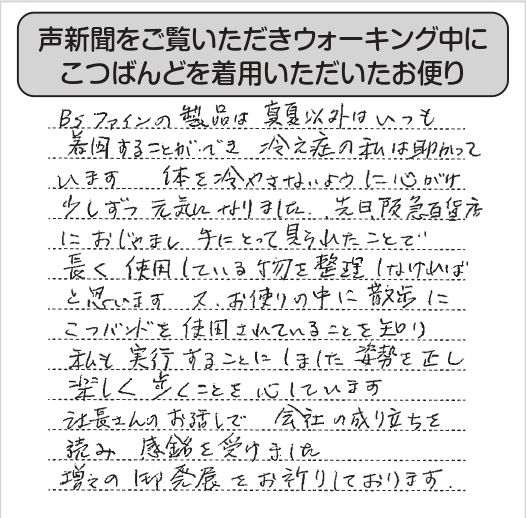 声新聞をご覧いただきウォーキング中に
こつばんどを着用いただいたお便り
BSファインの製品は真夏以外はいつも
着用することができ 冷え症の私は助かって
います 体を冷やさないように心がけ
少しずつ元気になりました、先日阪急百貨店
におじゃまし手にとって見られたことで
長く使用している物を整理しなければ
と思います 又、お便りの中に散歩に
こつバンドを使用されていることを知り
私も実行することにしました 姿勢を正し
楽しく歩くことを心しています
社長さんのお話しで 会社の成り立ちを
読み 感銘を受けました
増々の御発展をお祈りしております.